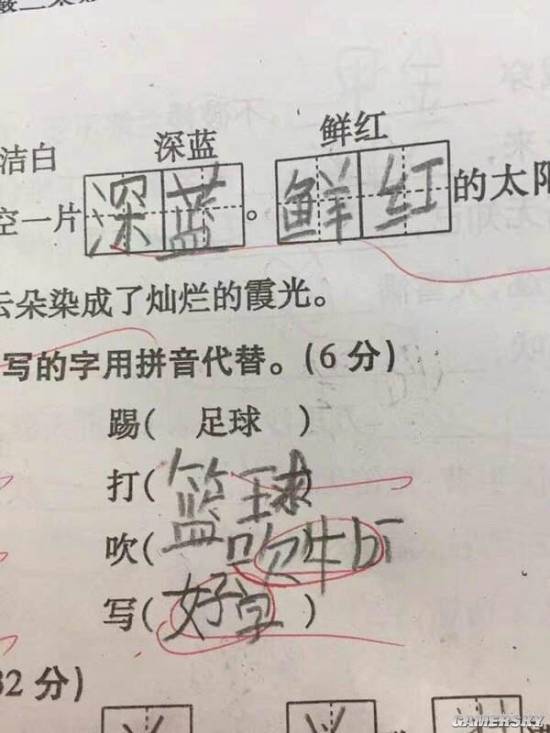 洁白 深蓝 鲜红
空一片 深蓝 。 鲜红 的太阳
云朵染成了灿烂的霞光。
写的字用拼音代替。(6分)
踢( 足球 )
打( 篮球 )
吹( 吹牛bī
写( 好字 )
32分)
GAMERSKY